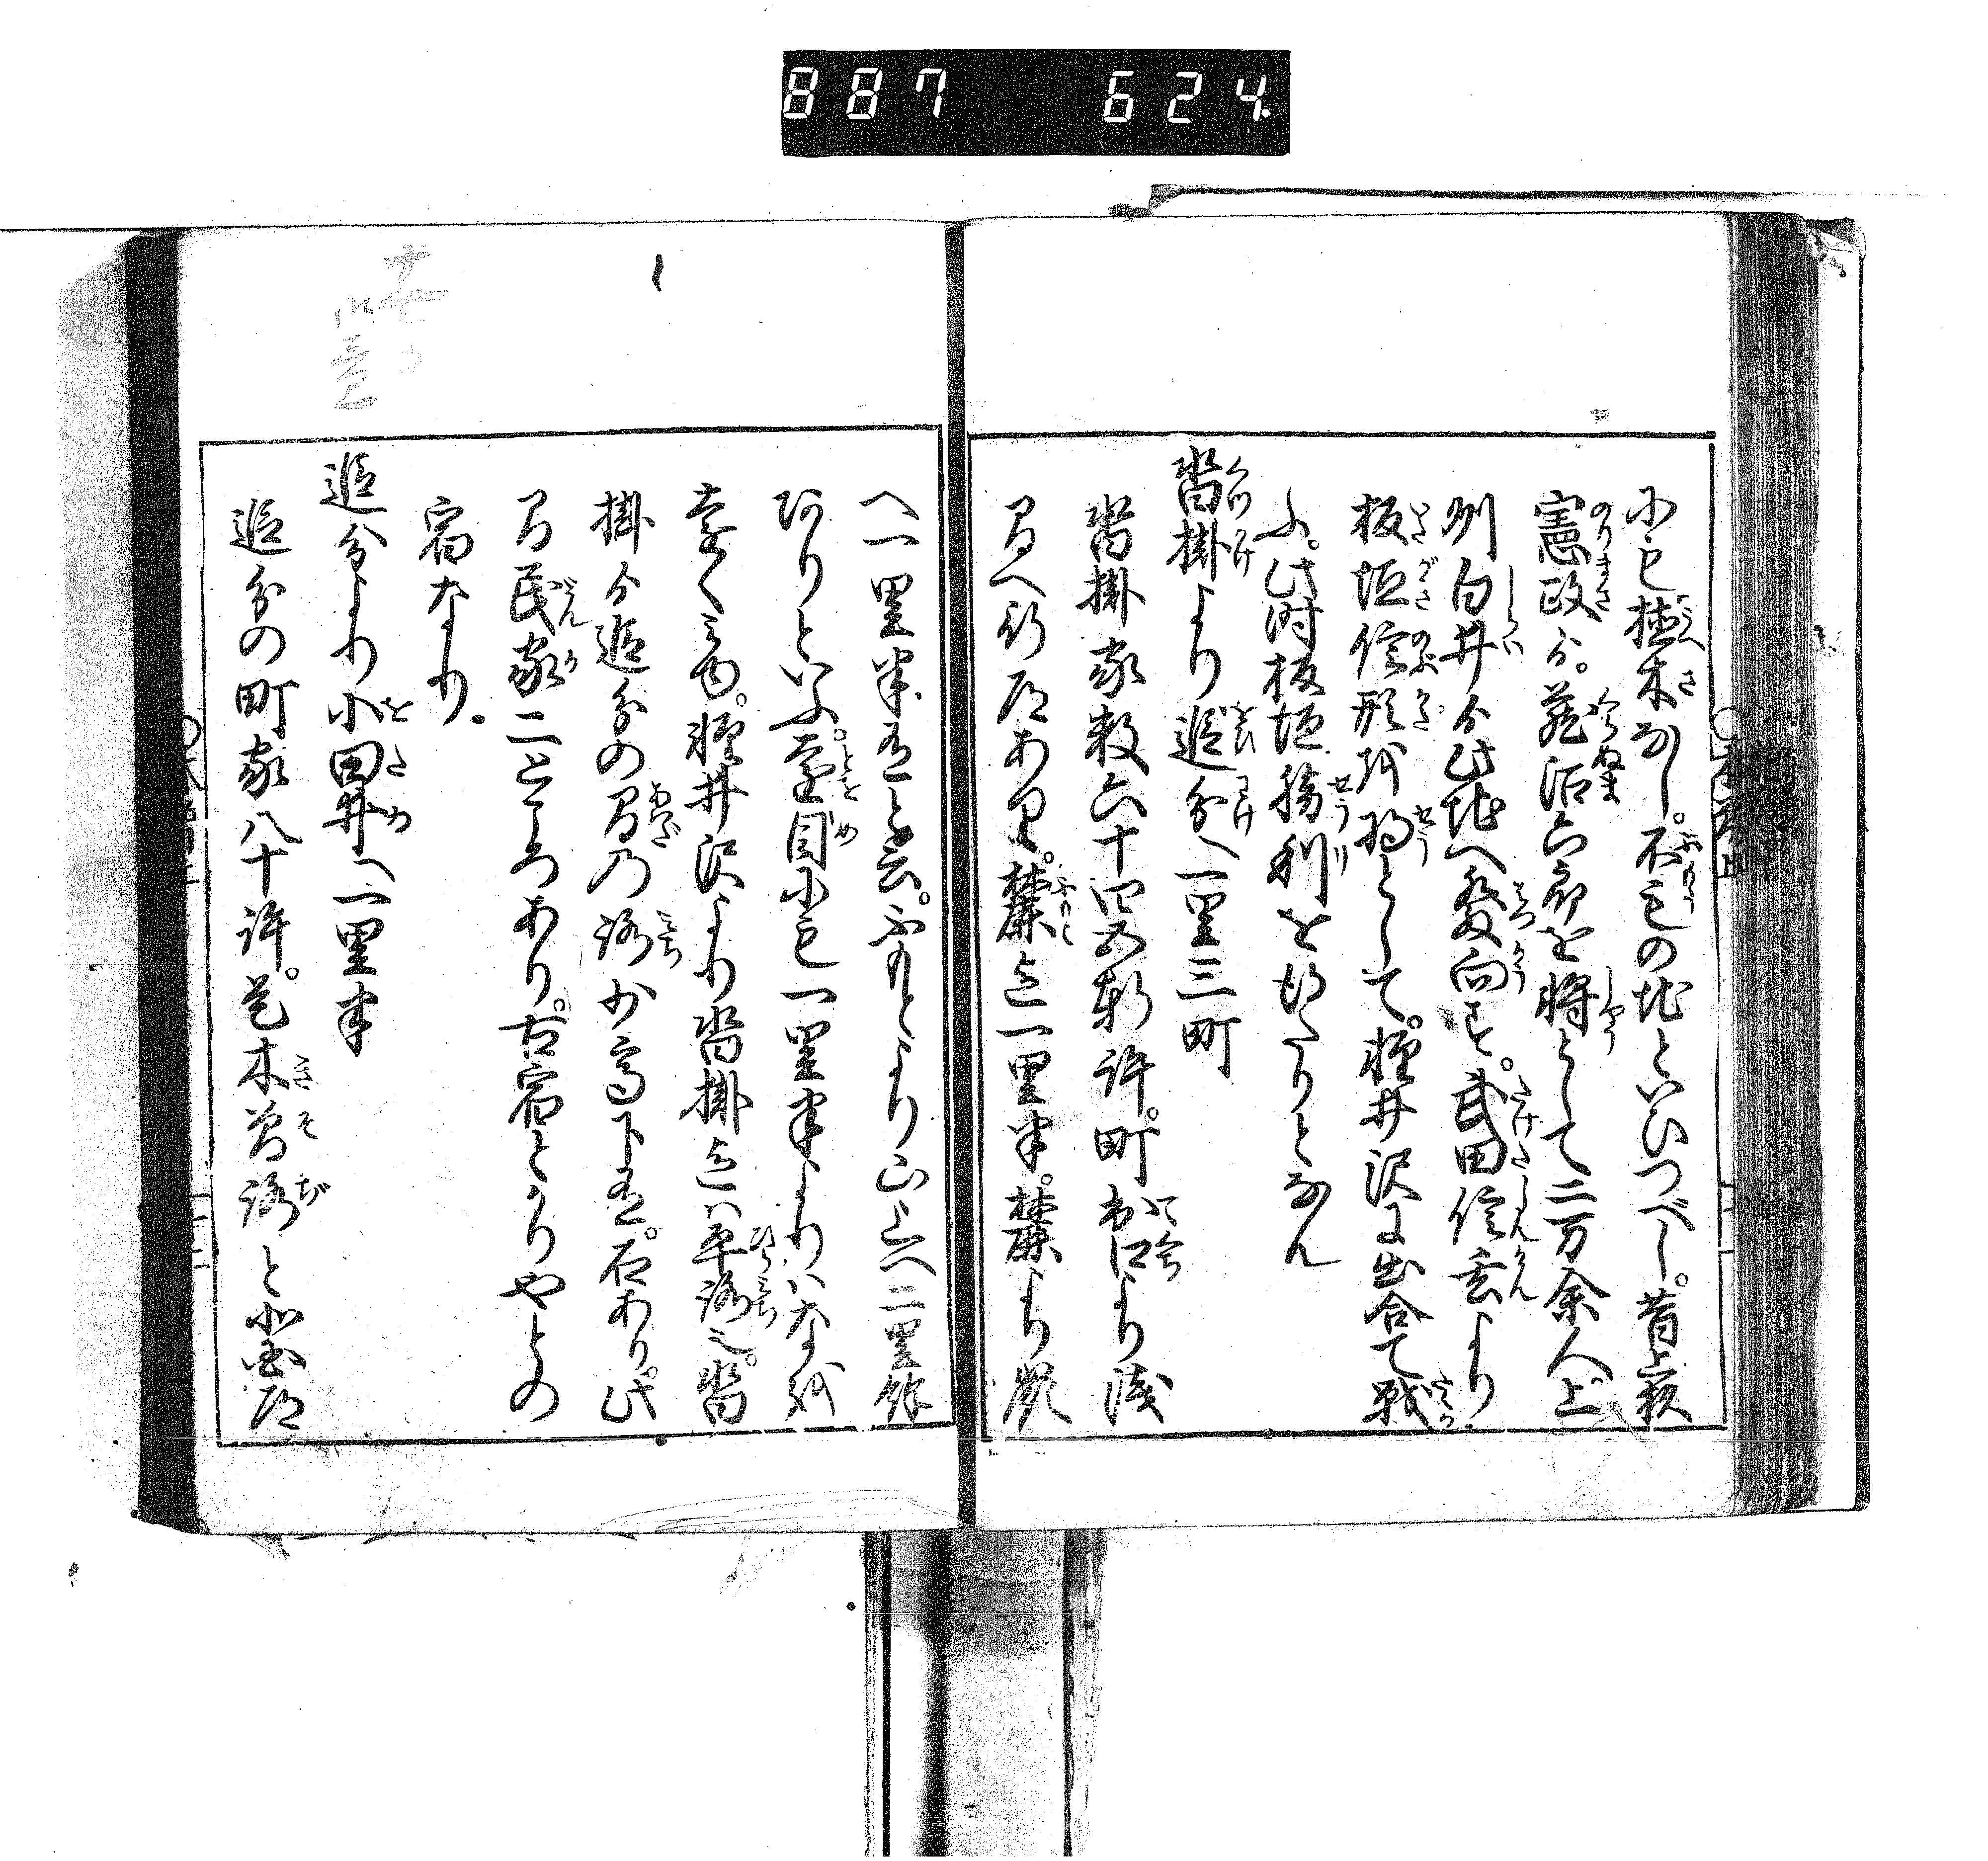 887 624
にも植木なし。不毛の地といひつべし。昔上杉
憲政より。菴沼六郎を将として二万余人上
州白井より此地へ発向す。武田信玄より
板垣信形を将として。軽井沢に出合て戦
ふ。此時板垣勝利を得たりとなん
沓掛より追分へ一里三町
沓掛家数六十四五軒許。町出口より浅
間へ行道あり。麓迄一里半。麓より嶽
へ一里半有と云。ふもとより山上へ二里餘
ありといふ。遠目にも一里半よりハなを
遠く見ゆ。軽井沢より沓掛迄ハ平路也。沓
掛より追分の間の路少高下有。石あり。此
間民家二ところあり。古宿とかりやとの
宿なり。
追分より小田井へ一里半
追分の町家八十許。是木曽路と北国道